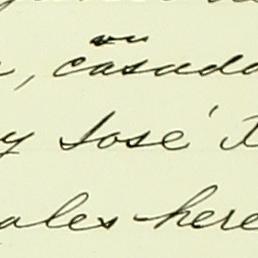 casada
y José
ales here